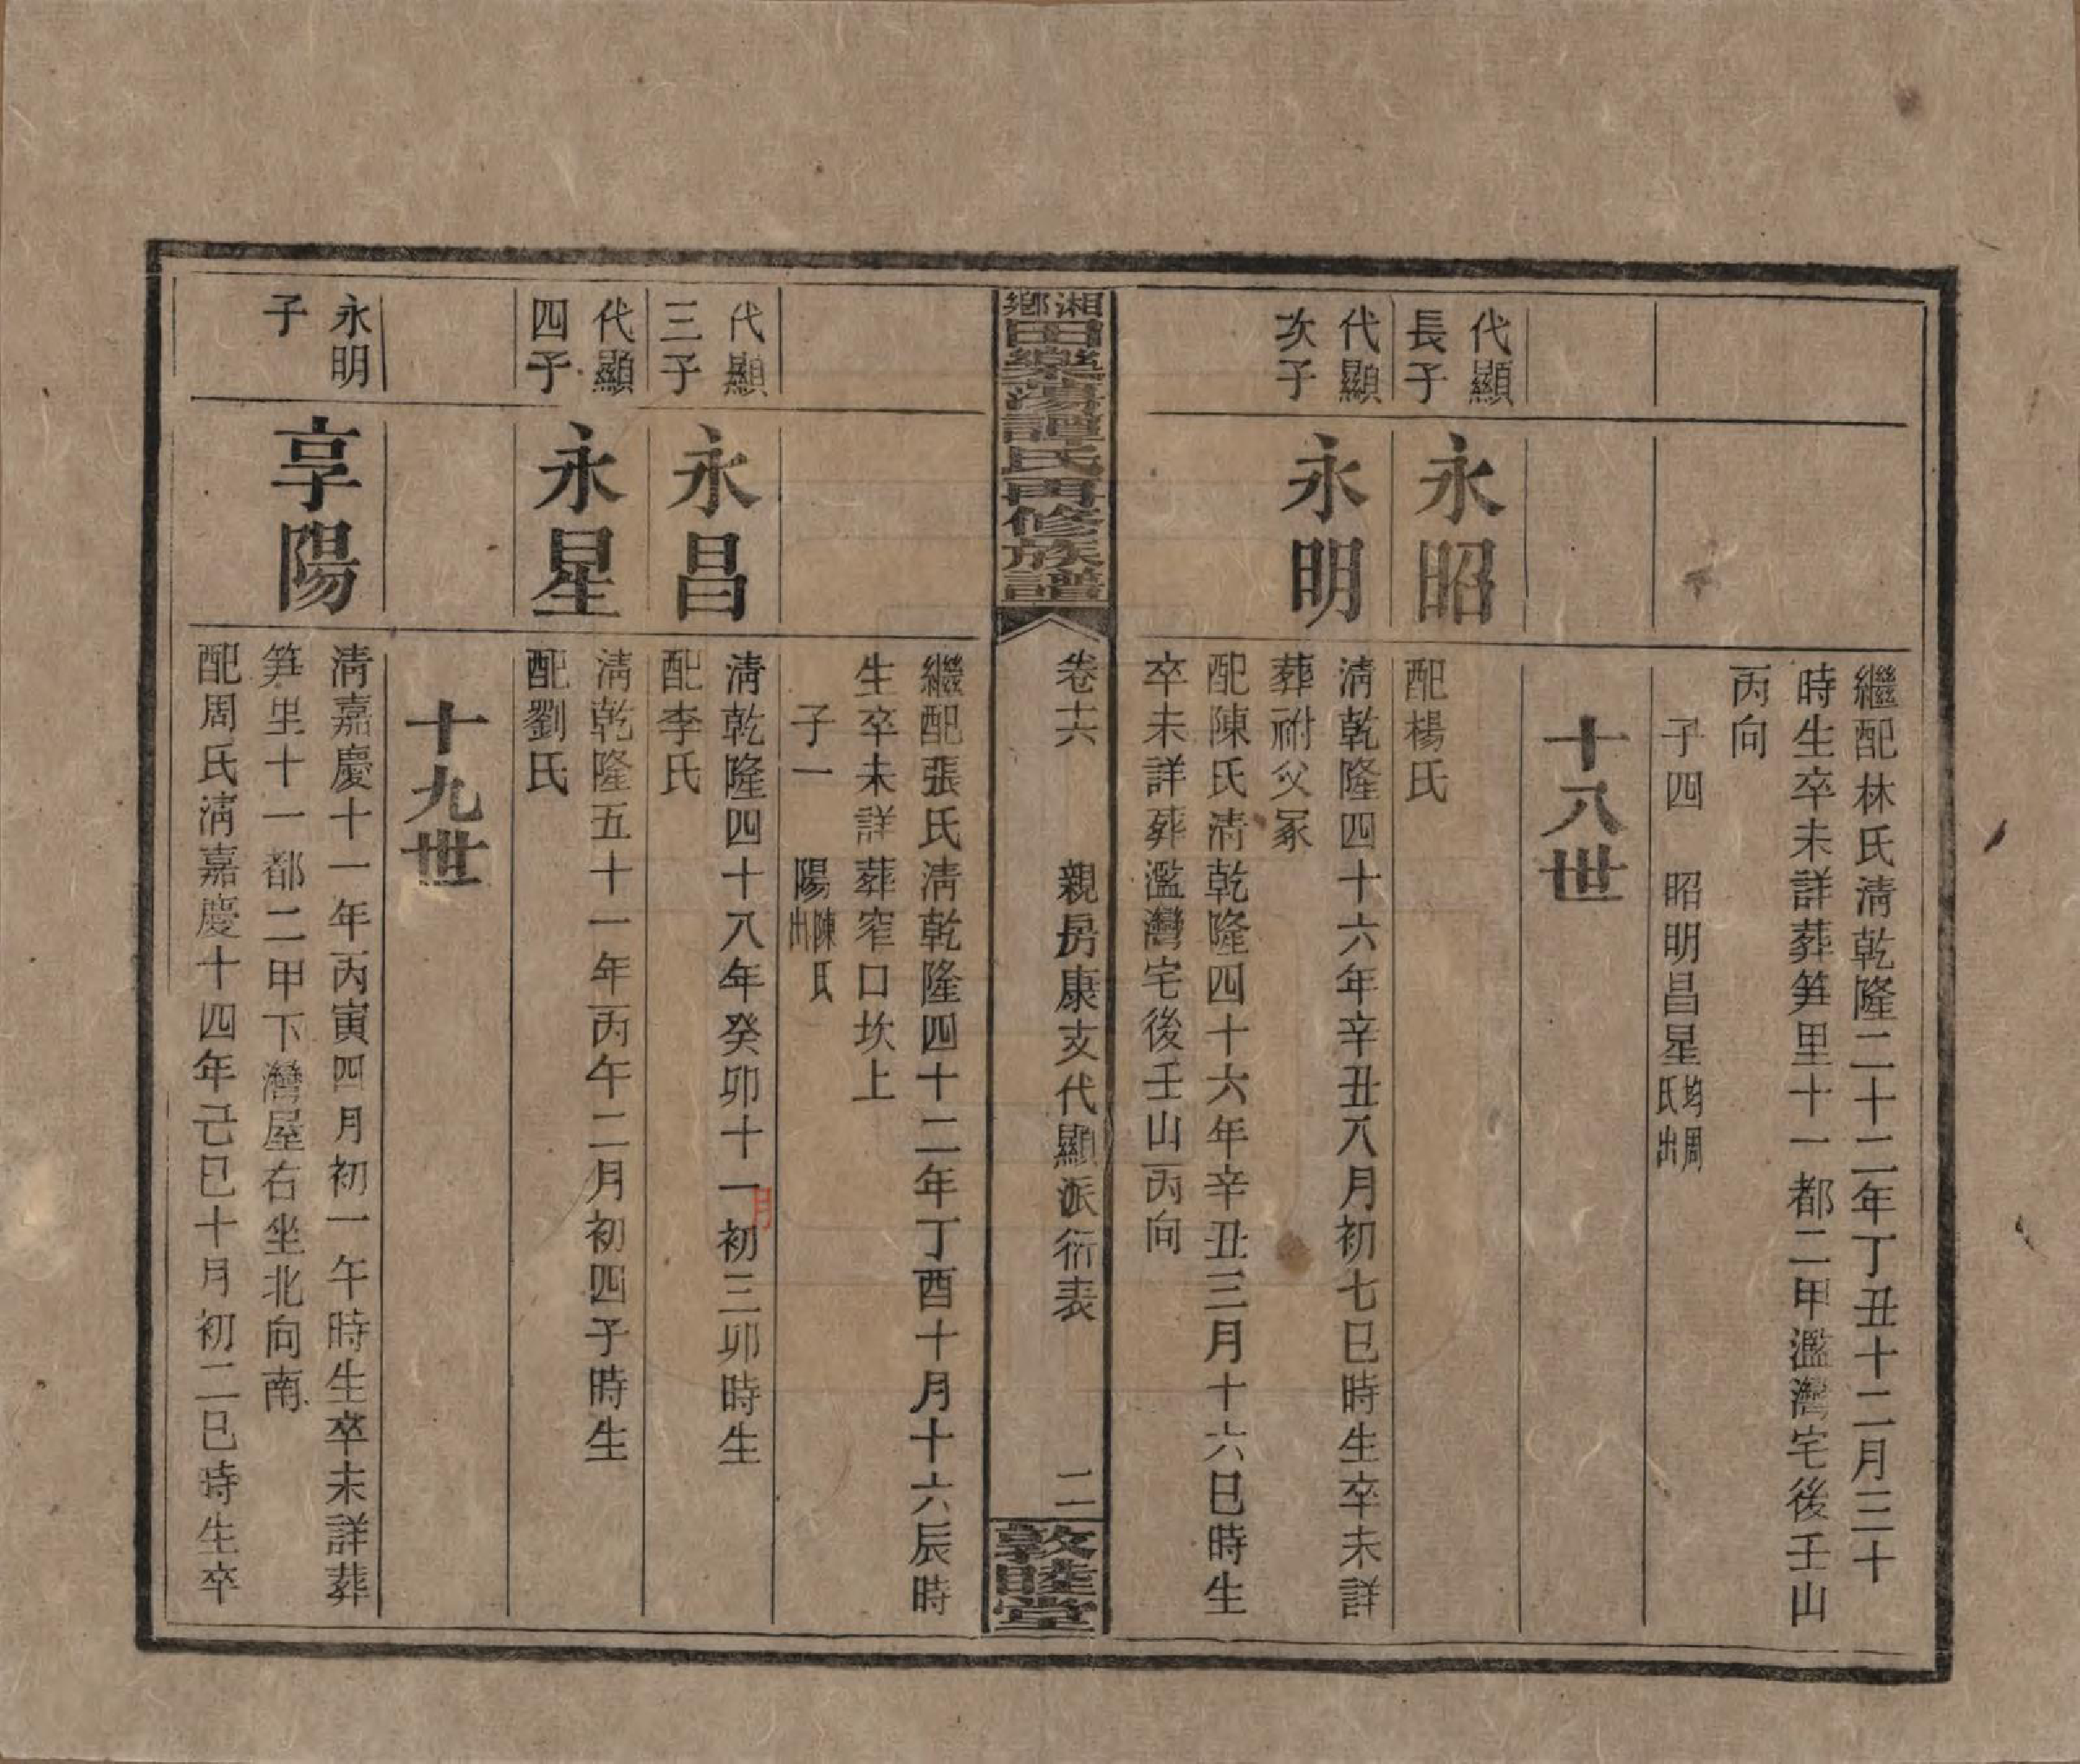 繼配林氏淸乾隆二十二年丁丑十二月三十
時生卒未詳葬笋里十一都二甲濫灣宅後壬山
丙向
子四　昭明昌星均周氏出
十八世
代顯長子
永昭
配楊氏
代顯次子
永明
淸乾隆四十六年辛丑八月初七巳時生卒未詳
葬祔父冢
配陳氏淸乾隆四十六年辛丑三月十六巳時生
卒未詳葬濫灣宅後壬山丙向
湘鄉田樂蕩譚氏再修族譜
卷十六
親房康支代顯派衍表
二
敦睦堂
繼配張氏淸乾隆四十二年丁酉十月十六辰時
生卒未詳葬窄口坎上
子一　陽陳氏出
代顯三子
永昌
淸乾隆四十八年癸卯十一月初三卯時生
配李氏
代顯四子
永星
淸乾隆五十一年丙午二月初四子時生
配劉氏
十九世
永明子
享陽
淸嘉慶十一年丙寅四月初一午時生卒未詳葬
笋里十一都二甲下灣屋右坐北向南
配周氏淸嘉慶十四年己巳十月初二巳時生卒